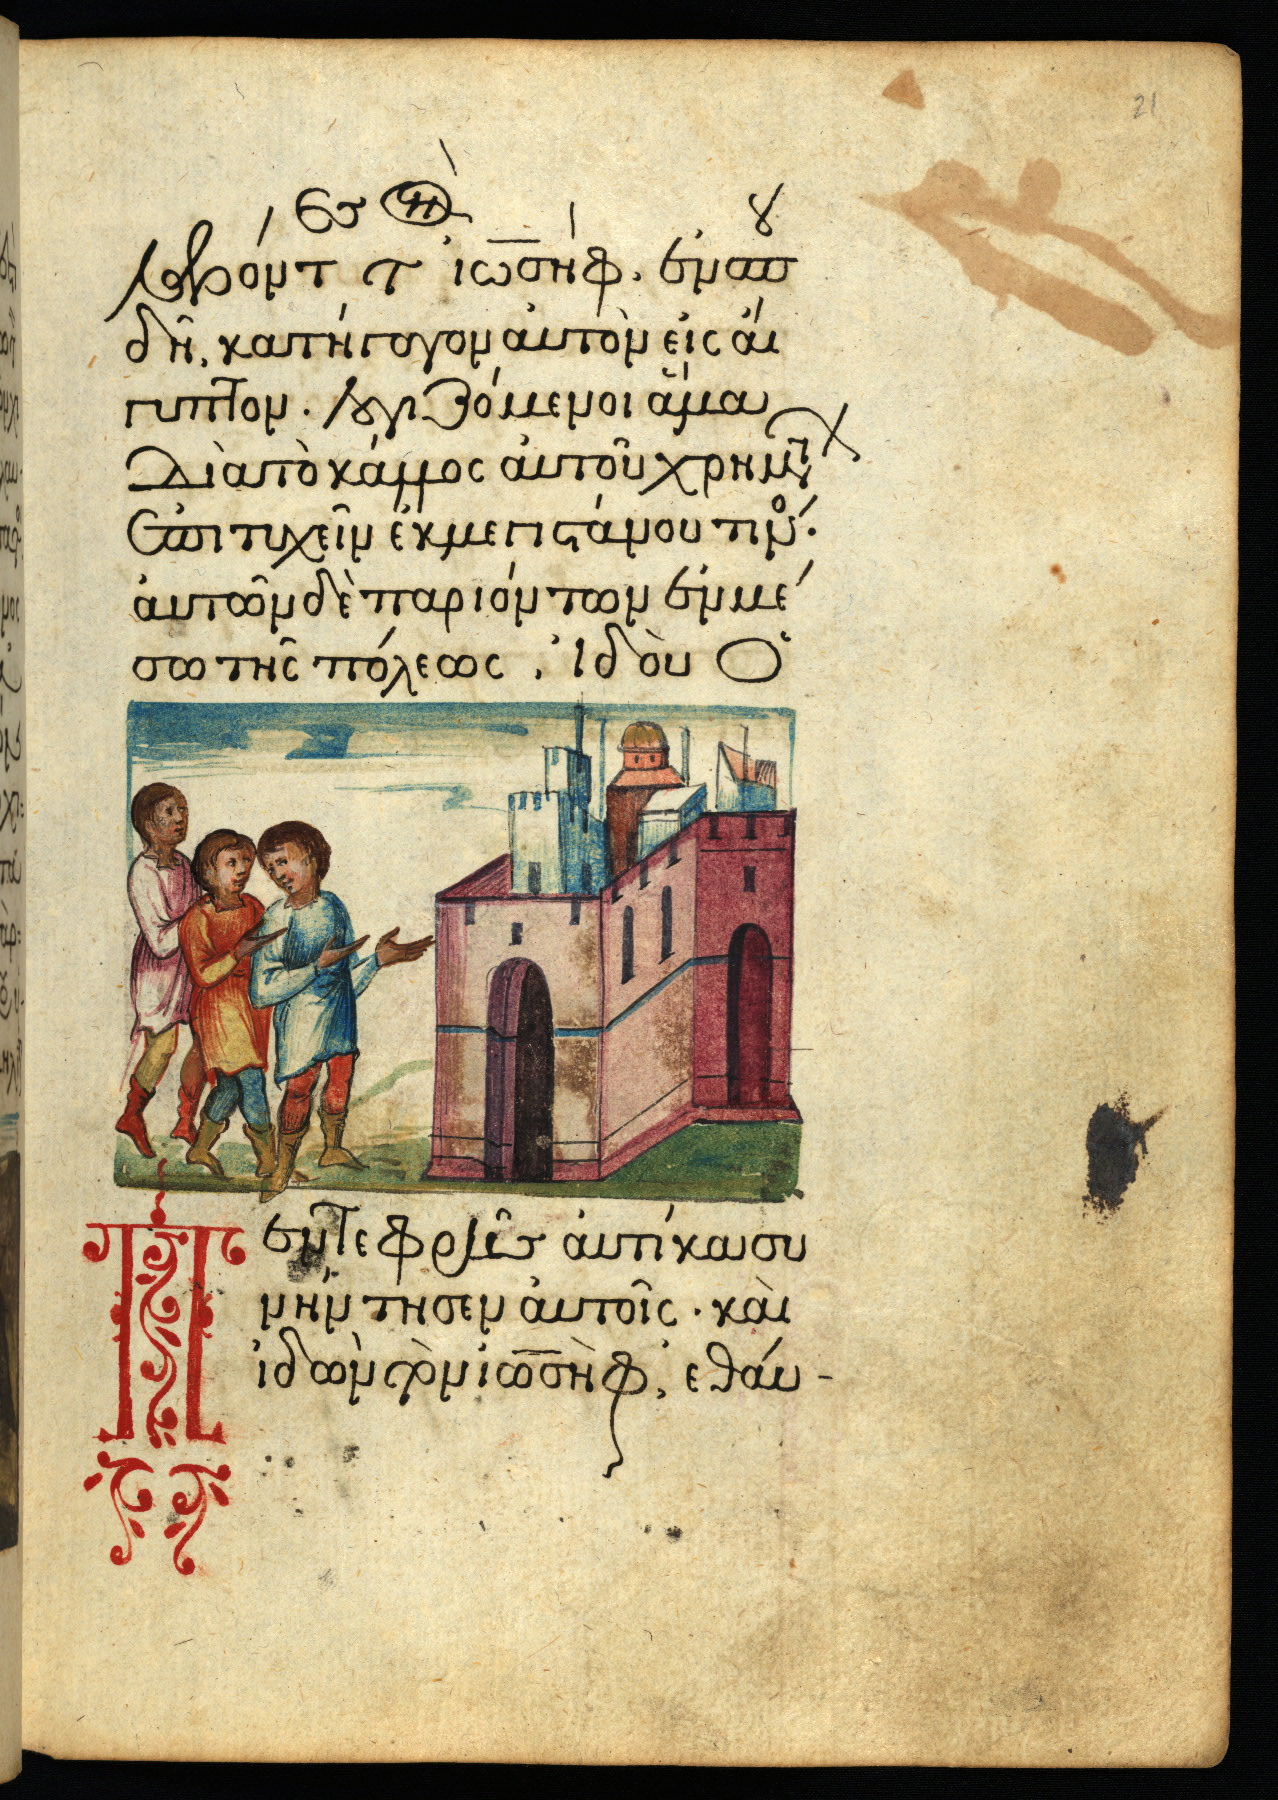 21
λαβόντ τ ἰωσὴφ. ἐν σπου
δῆ, κατήγαγον αὐτὸν εἰς αἴ
γυπτον. λογιζόμενοι ἅμα
διὰ τὸ κάλλος αὐτοῦ χρημ
ἐπιτυχεῖν ἐκ μεγιστάνου τιν.
αὐτῶν δὲ παριόντων ἐν μέ
σω τῆς πόλεως. ἰδοὺ ὁ
Πεντεφρῆς αὐτίκα συ
νήντησεν αὐτοῖς. καὶ
ἰδὼν τὸν ἰωσὴφ, ἐθαύ-